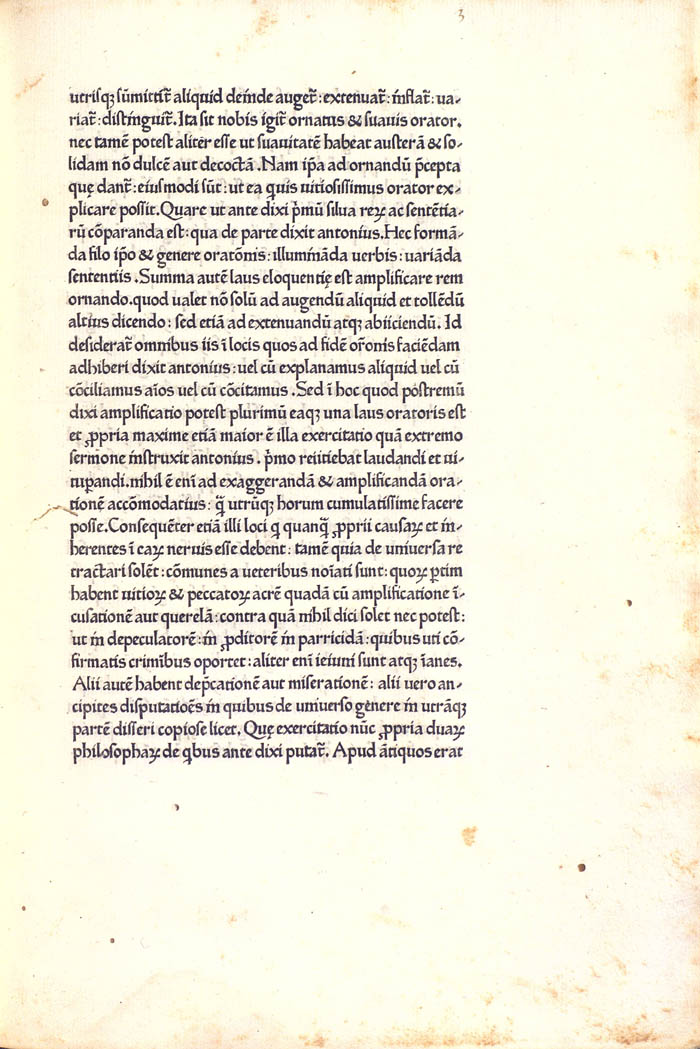 3
utrisqꝫ sūmittit̄ aliquid deinde auget̄ : extenuat̄ : inflat̄ : ua-
riat̄ : distinguit̄. Ita sit nobis igit̄ ornatus & suauis orator.
nec tamē potest aliter esse ut suauitatē habeat austerā & so-
lidam nō dulcē aut decoctā . Nam ip̄a ad ornandū p̄cepta
quę dant̄ : eiusmodi sūt : ut ea quis uitiosissimus orator ex-
plicare possit. Quare ut ante dixi p̄mū silua reꝝ ac sentētia-
rū cōparanda est : qua de parte dixit antonius. Hec formā-
da filo ip̄o & genere orationis : illumināda uerbis : uariāda
sententiis . Summa autē laus eloquentię est amplificare rem
ornando. quod ualet nō solū ad augendū aliquid et tollēdū
altius dicendo : sed etiā ad extenuandū atqꝫ abiiciendū. Id
desiderat̄ omnibus iis ī locis quos ad fidē or̄onis faciēdam
adhiberi dixit antonius : uel cū explanamus aliquid uel cū
cōciliamus aīos uel cū cōcitamus . Sed ī hoc quod postremū
dixi amplificatio potest plurimū eaqꝫ una laus oratoris est
et ꝓpria maxime etiā maior ē illa exercitatio quā extremo
sermone instruxit antonius . p̄mo reiitiebat laudandi et ui-
tuꝑandi. nihil ē enī ad exaggerandā & amplificandā ora-
tionē accōmodatius : q̄ utrūqꝫ horum cumulatissime facere
posse. Consequēter etiā illi loci q quanq̄ ꝓprii causaꝝ et in-
herentes ī caꝝ neruis esse debent : tamē quia de uniuersa re
tractari solēt : cōmunes a ueteribus noīati sunt : quoꝝ ꝑtim
habent uitioꝝ & peccatoꝝ acrē quadā cū amplificatione ī-
cusationē aut querelā : contra quā nihil dici solet nec potest :
ut in depeculatorē : in ꝓditorē in parricidā : quibus uti cō-
firmatis criminibus oportet : aliter enī ieiuni sunt atqꝫ īanes.
Alii autē habent dep̄cationē aut miserationē : alii uero an-
cipites disputatiōēs in quibus de uniuerso genere in utrāqꝫ
partē disseri copiose licet. Quę exercitatio nūc ꝓpria duaꝝ
philosophaꝝ de qbus ante dixi putat̄. Apud ātiquos erat